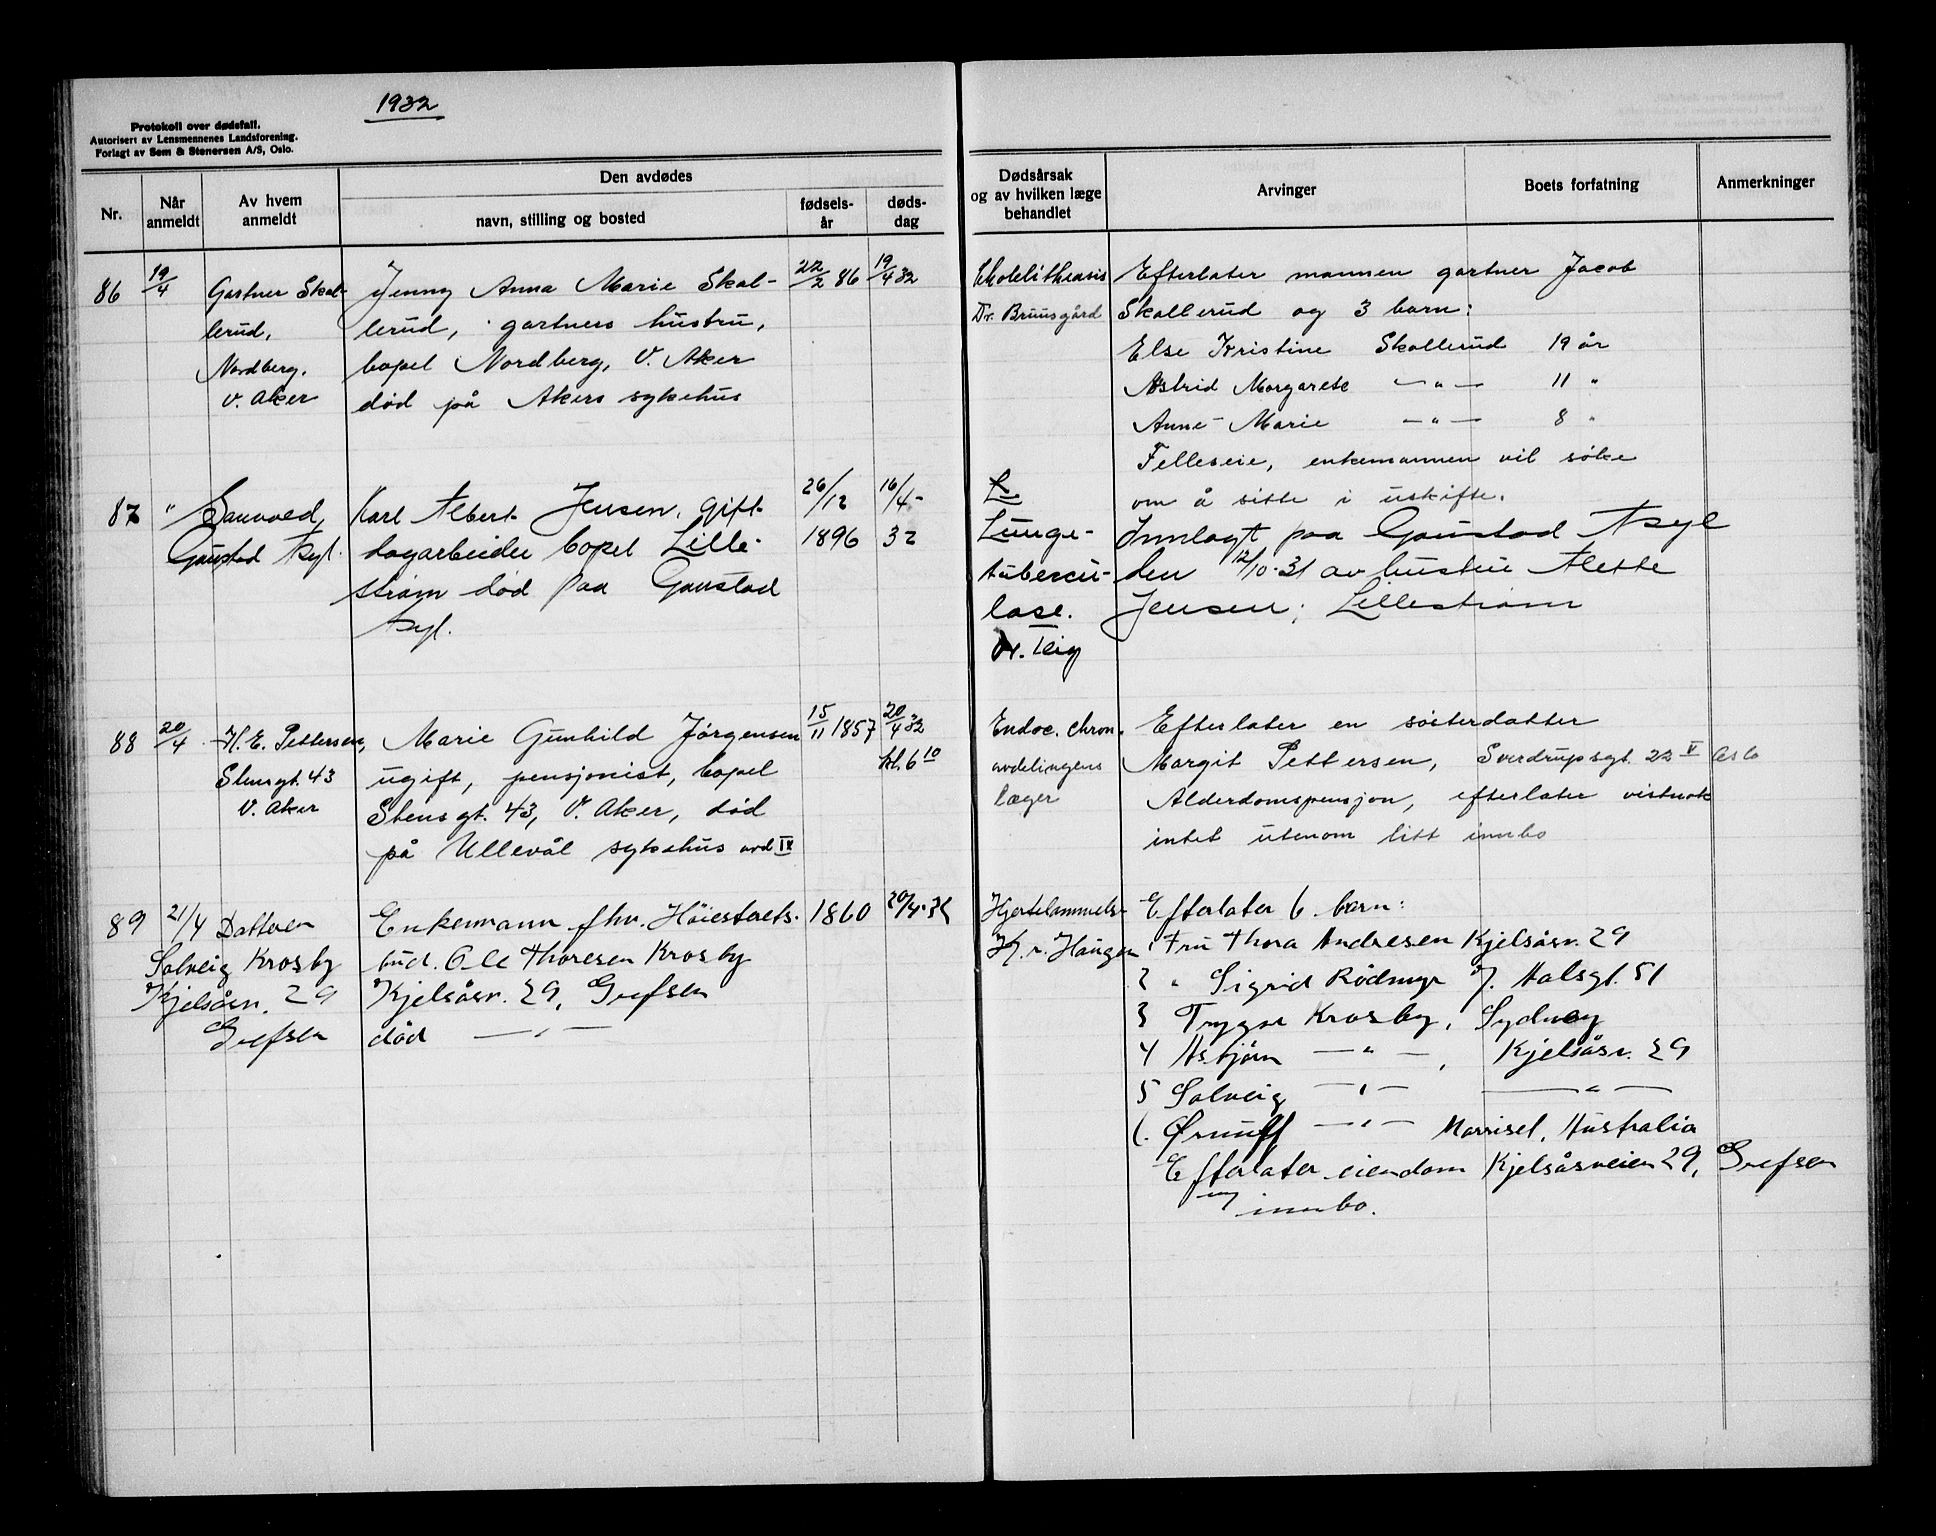 1932
Protokoll over dødsfall.
Autorisert av Lensmennenes Landsforening.
Forlagt av Sem & Stenersen A/S, Oslo.
Nr.
Når anmeldt
Av hvem anmeldt
Den avdødes
navn, stilling og bosted
fødselsår
dødsdag
Dødsårsak og av hvilken læge behandlet
Arvinger
Boets forfatning
Anmerkninger
86 19/4 Gartner Skal-
lerud,
Nordberg,
V. Aker
Jenny Anna Marie Skal-
lerud, gartners hustru,
bopel Nordberg, V. Aker
død på Akers sykehus
22/2 86
19/4 32
Dr. Bruusgård
Efterlater mannen gartner Jacob
Skallerud og 3 barn:
Else Kristine Skallerud 19 år
Astrid Margarete —"— 11 "
Anne-Marie —"— 8 "
Felleseie, enkemannen vil søke
om å sitte i uskifte.
87 "
Gaustad Asyl.
Karl Albert Jensen, gift
dagarbeider bopel Lille-
strøm død paa Gaustad
Asyl.
26/12
1896
16/4-
32
Lunge-
tubercu-
lose.
Innlagt paa Gaustad Asyl
den 12/10-31 av hustru Alette
Jensen, Lillestrøm
88 20/4 H. E. Pettersen,
Stensgt. 43
V. Aker
Marie Gunhild Jørgensen
ugift, pensjonist, bopel
Stensgt. 43, V. Aker, død
på Ullevål sykehus avd IX
15/11 1857
20/4 32
kl. 6 10
Endoc. chron.
avdelingens
læger
Efterlater en søsterdatter
Margit Pettersen, Sverdrupsgt. 22 V Oslo
Alderdomspensjon, efterlater vistnok
intet utenom litt innbo
89 21/4 Datteren
Solveig Krosby
Kjelsåsv. 29
Grefsen
Enkemann fhv. Høiesterets-
bud. Ole Thoresen Krosby
Kjelsåsv. 29, Grefsen
død —"—
1860
20/4-32
Hjertelammels-
Haugen
1 Fru Thora Andresen Kjelsåsv. 29
Efterlater 6 barn:
2 " Sigrid Rødmyr J. Aalsgt. 51
3 Trygve Krosby, Sydney
4 Asbjørn —"—, Kjelsåsv. 29
5 Solveig —"— —"—
6. —"— Morriset, Australia
Efterlater eiendom Kjelsåsveien 29, Grefsen
og innbo.